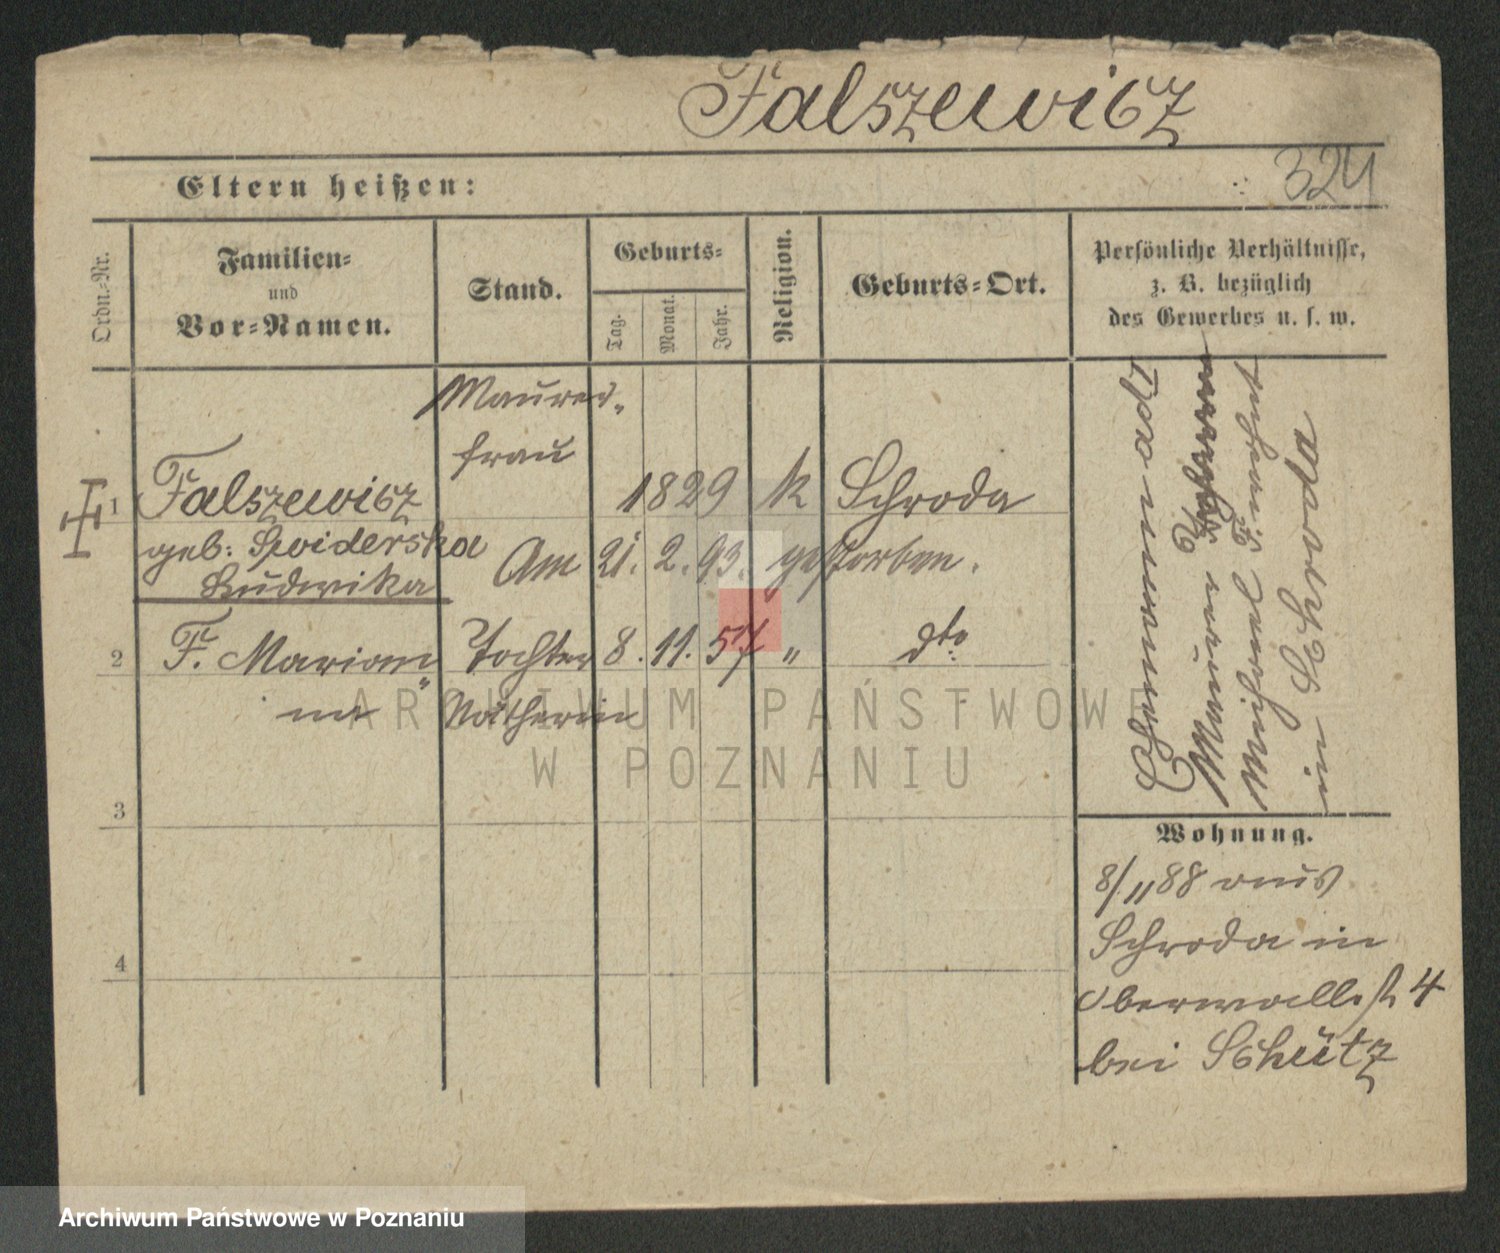 Falszewicz
Eltern heißen:
324
Ordn.-Nr.
Familien-
und
Vor-Namen.
Stand.
Geburts-
Tag.
Monat.
Jahr.
Religion.
Geburts-Ort.
Persönliche Verhältnisse,
z. B. bezüglich
des Gewerbes u. s. w.
1
Falszewicz
geb: Swiderska
Ludwika
Maurer-
frau
1829
k
Schroda
Am 21. 2. 93. gestorben.
2
F. Marian-
na
Tochter
Nätherin
8. 11. 57
"
dto
3
4
Ehemann
Maurer
Michael F.
in Schroda
Wohnung.
8/11 88 aus
Schroda in
Oberwallst 4
bei Schütz
ARCHIWUM PAŃSTWOWE
W POZNANIU
Archiwum Państwowe w Poznaniu